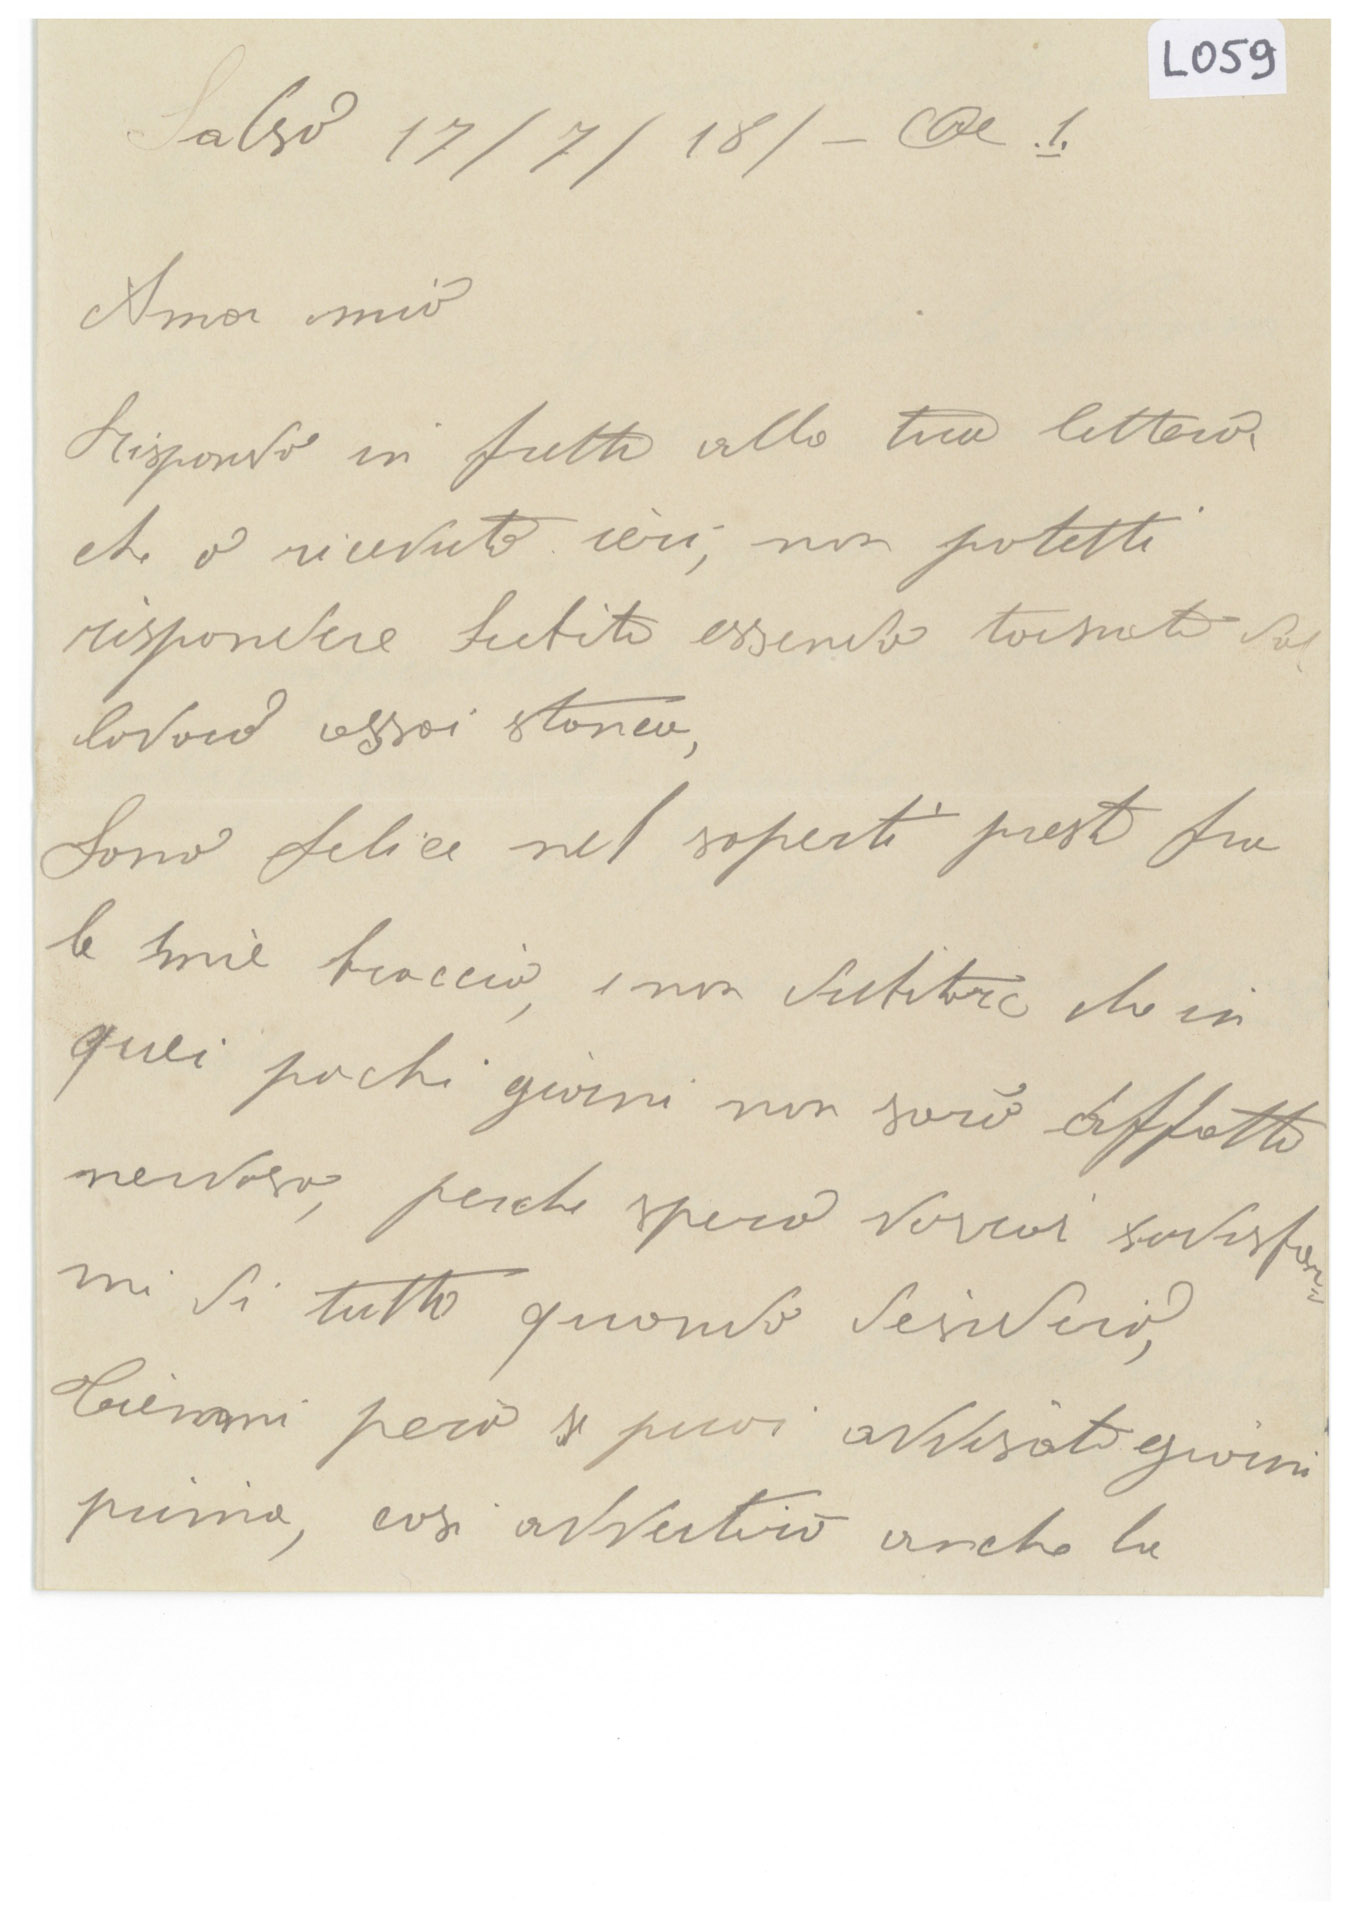 L059
Salso 17/7/18/ - Ore .1.
Amor mio
Rispondo in fretta alla tua lettera
che ò ricevuto ieri, non potetti
rispondere subito essendo tornato dal
lavoro assai stanco,
Sono felice nel saperti presto fra
le mie braccia, e non dubitare che in
quei pochi giorni non sarò affatto
nervoso, perche spero vorrai sodisfar=
mi di tutto quando desidero,
Tienimi però se puoi avvisato giorni
prima, cosi avvertirò anche la